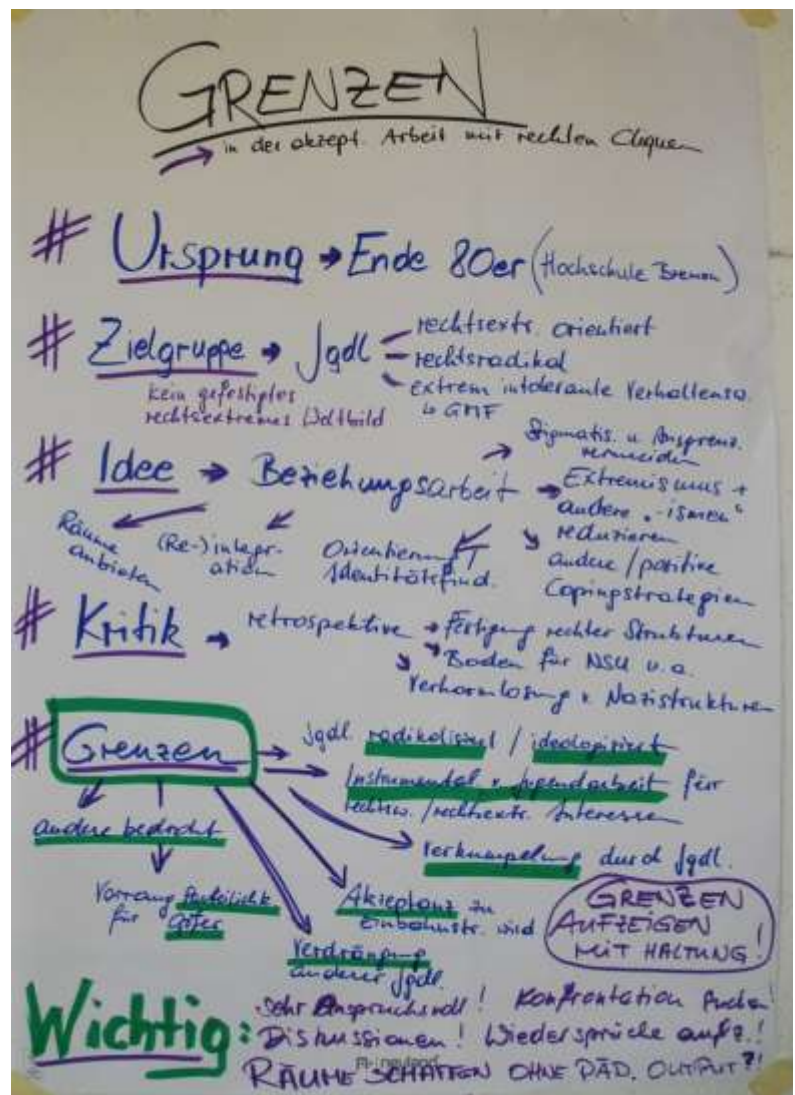 GRENZEN
in der akzept. Arbeit mit rechten Cliquen
# Ursprung → Ende 80er (Hochschule Bremen)
# Zielgruppe → Jgdl
rechtsextr. orientiert
rechtsradikal
extrem intolerante Verhaltensw.
↳ GMF
kein gefestigtes
rechtsextremes Weltbild
# Idee → Beziehungsarbeit
Stigmatis. u Ausgrenz.
vermeiden
→ Extremismus +
andere "-ismen"
reduzieren
andere / positive
Copingstrategien
Räume
anbieten
(Re-)integr-
ation
Orientierung
Identitätsfind.
# Kritik → retrospektive → Festigung rechter Strukturen
Boden für NSU u.a.
Verharmlosung v. Nazistrukturen
# Grenzen → jgdl. radikalisiert / ideologisiert
Instrumental. v. Jugendarbeit für
rechtsr. /rechtsextr. Interessen
Verkumpelung durch Jgdl.
andere bedroht
Vorrang
für Opfer
Akzeptanz zu
Einbahnstr. wird
Verdrängung
anderer Jgdl.
GRENZEN
AUFZEIGEN
MIT HALTUNG!
Wichtig:
sehr Anspruchsvoll! Konfrontation suchen!
Diskussionen! Wiedersprüche aufz.!
neuland
RÄUME SCHAFFEN OHNE PÄD. OUTPUT?!